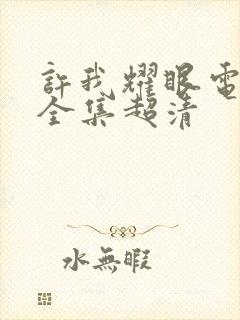 許我耀眼電
全集超清
水無暇